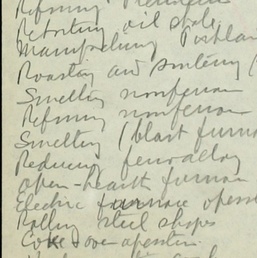 Refining
Retorting oil shale
Manufacturing Portlan
Roasting and smelting (
Smelting nonferrou
Refining nonferrou
Smelting (blast furna
Reducing ferroalloy
open-hearth furnace
Electric furnace opera
Rolling steel shapes
Coke oven operation